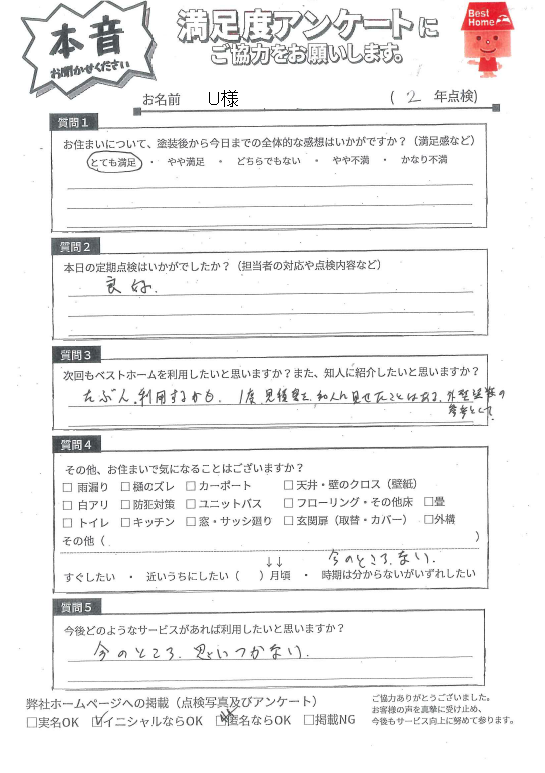 本音
お聞かせください
満足度アンケートに
ご協力をお願いします。
Best Home
お名前 U様 ( 2 年点検)
質問1
お住まいについて、塗装後から今日までの全体的な感想はいかがですか?(満足感など)
とても満足 ・ やや満足 ・ どちらでもない ・ やや不満 ・ かなり不満
質問2
本日の定期点検はいかがでしたか?(担当者の対応や点検内容など)
良好.
質問3
次回もベストホームを利用したいと思いますか?また、知人に紹介したいと思いますか?
たぶん、利用するかも. 1度、見積書を、知人に見せたことはある、外壁塗装の
参考として.
質問4
その他、お住まいで気になることはございますか?
□ 雨漏り □ 樋のズレ □ カーポート □ 天井・壁のクロス(壁紙)
□ 白アリ □ 防犯対策 □ ユニットバス □ フローリング・その他床 □畳
□ トイレ □ キッチン □ 窓・サッシ廻り □ 玄関扉(取替・カバー) □外構
その他( )
↓↓ 今のところ、ない.
すぐしたい ・ 近いうちにしたい( )月頃 ・ 時期は分からないがいずれしたい
質問5
今後どのようなサービスがあれば利用したいと思いますか?
今のところ、思いつかない.
弊社ホームページへの掲載(点検写真及びアンケート)
□実名OK ☑イニシャルならOK □匿名ならOK □掲載NG
ご協力ありがとうございました。
お客様の声を真摯に受け止め、
今後もサービス向上に努めて参ります。